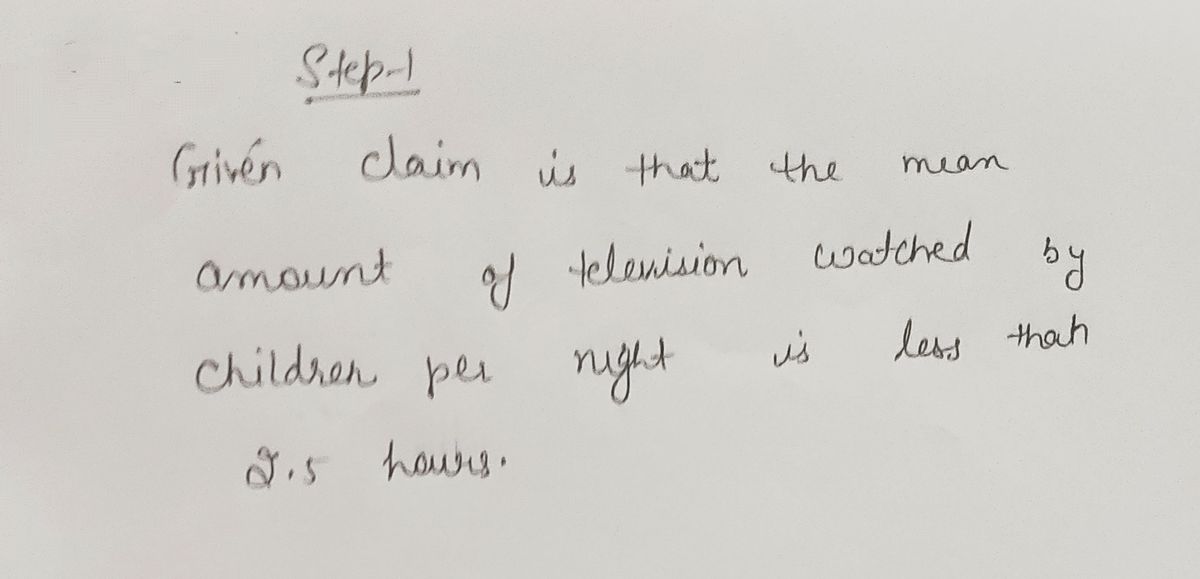 Step-1
Given claim is that the mean
amount of television watched by
children per night is less than
2.5 hours.